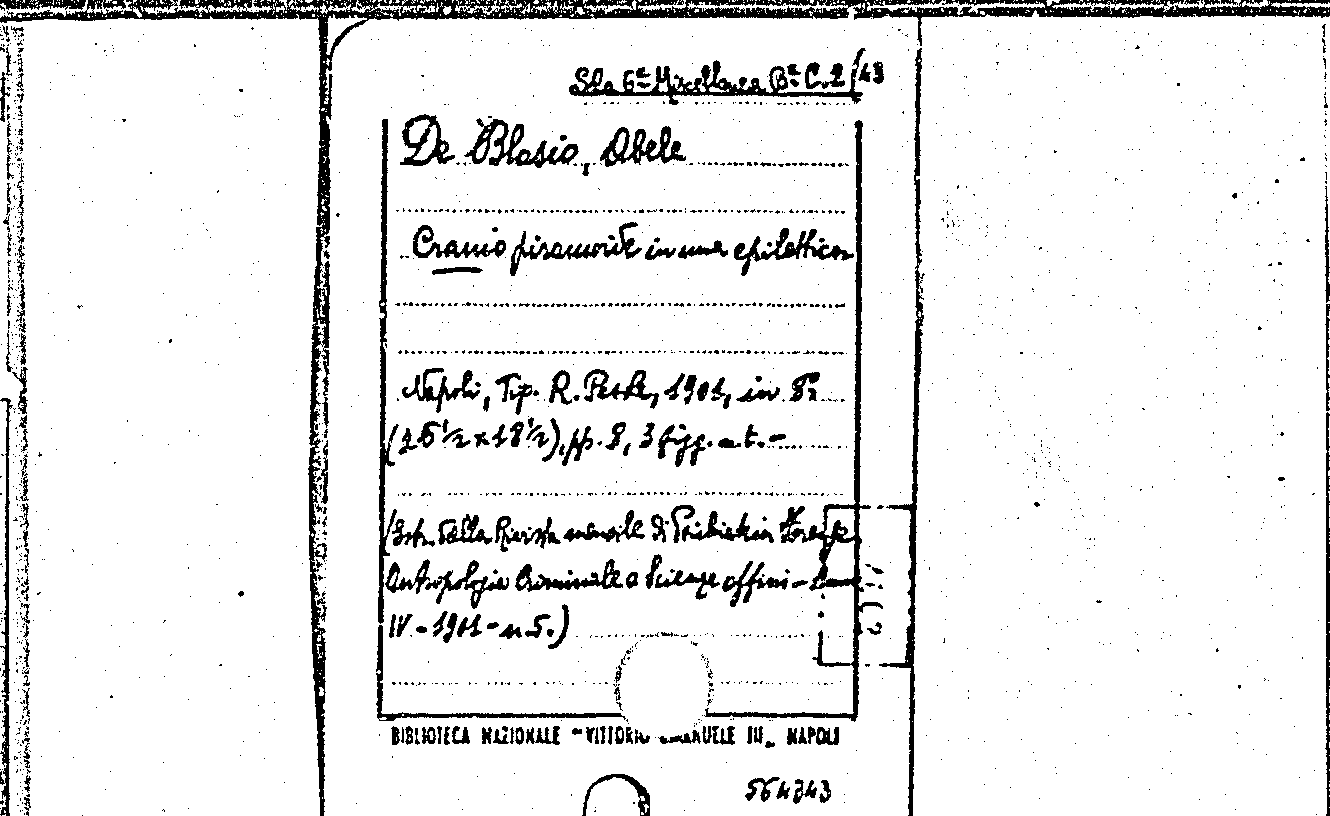 Sla 6ª Miscellanea Bª C. 2/43
De Blasio, Abele
Cranio piramoide in una epilettica
Napoli, Tip. R. Pesole, 1901, in 8º
(26½ x 18½), pp. 8, 3 figg. n. t. -
(Estr. dalla Rivista mensile di Psichiatria Forense
Antropologia Criminale e Scienze affini - Anno
IV - 1901 - n. 5.)
BIBLIOTECA NAZIONALE "VITTORIO EMANUELE III" NAPOLI